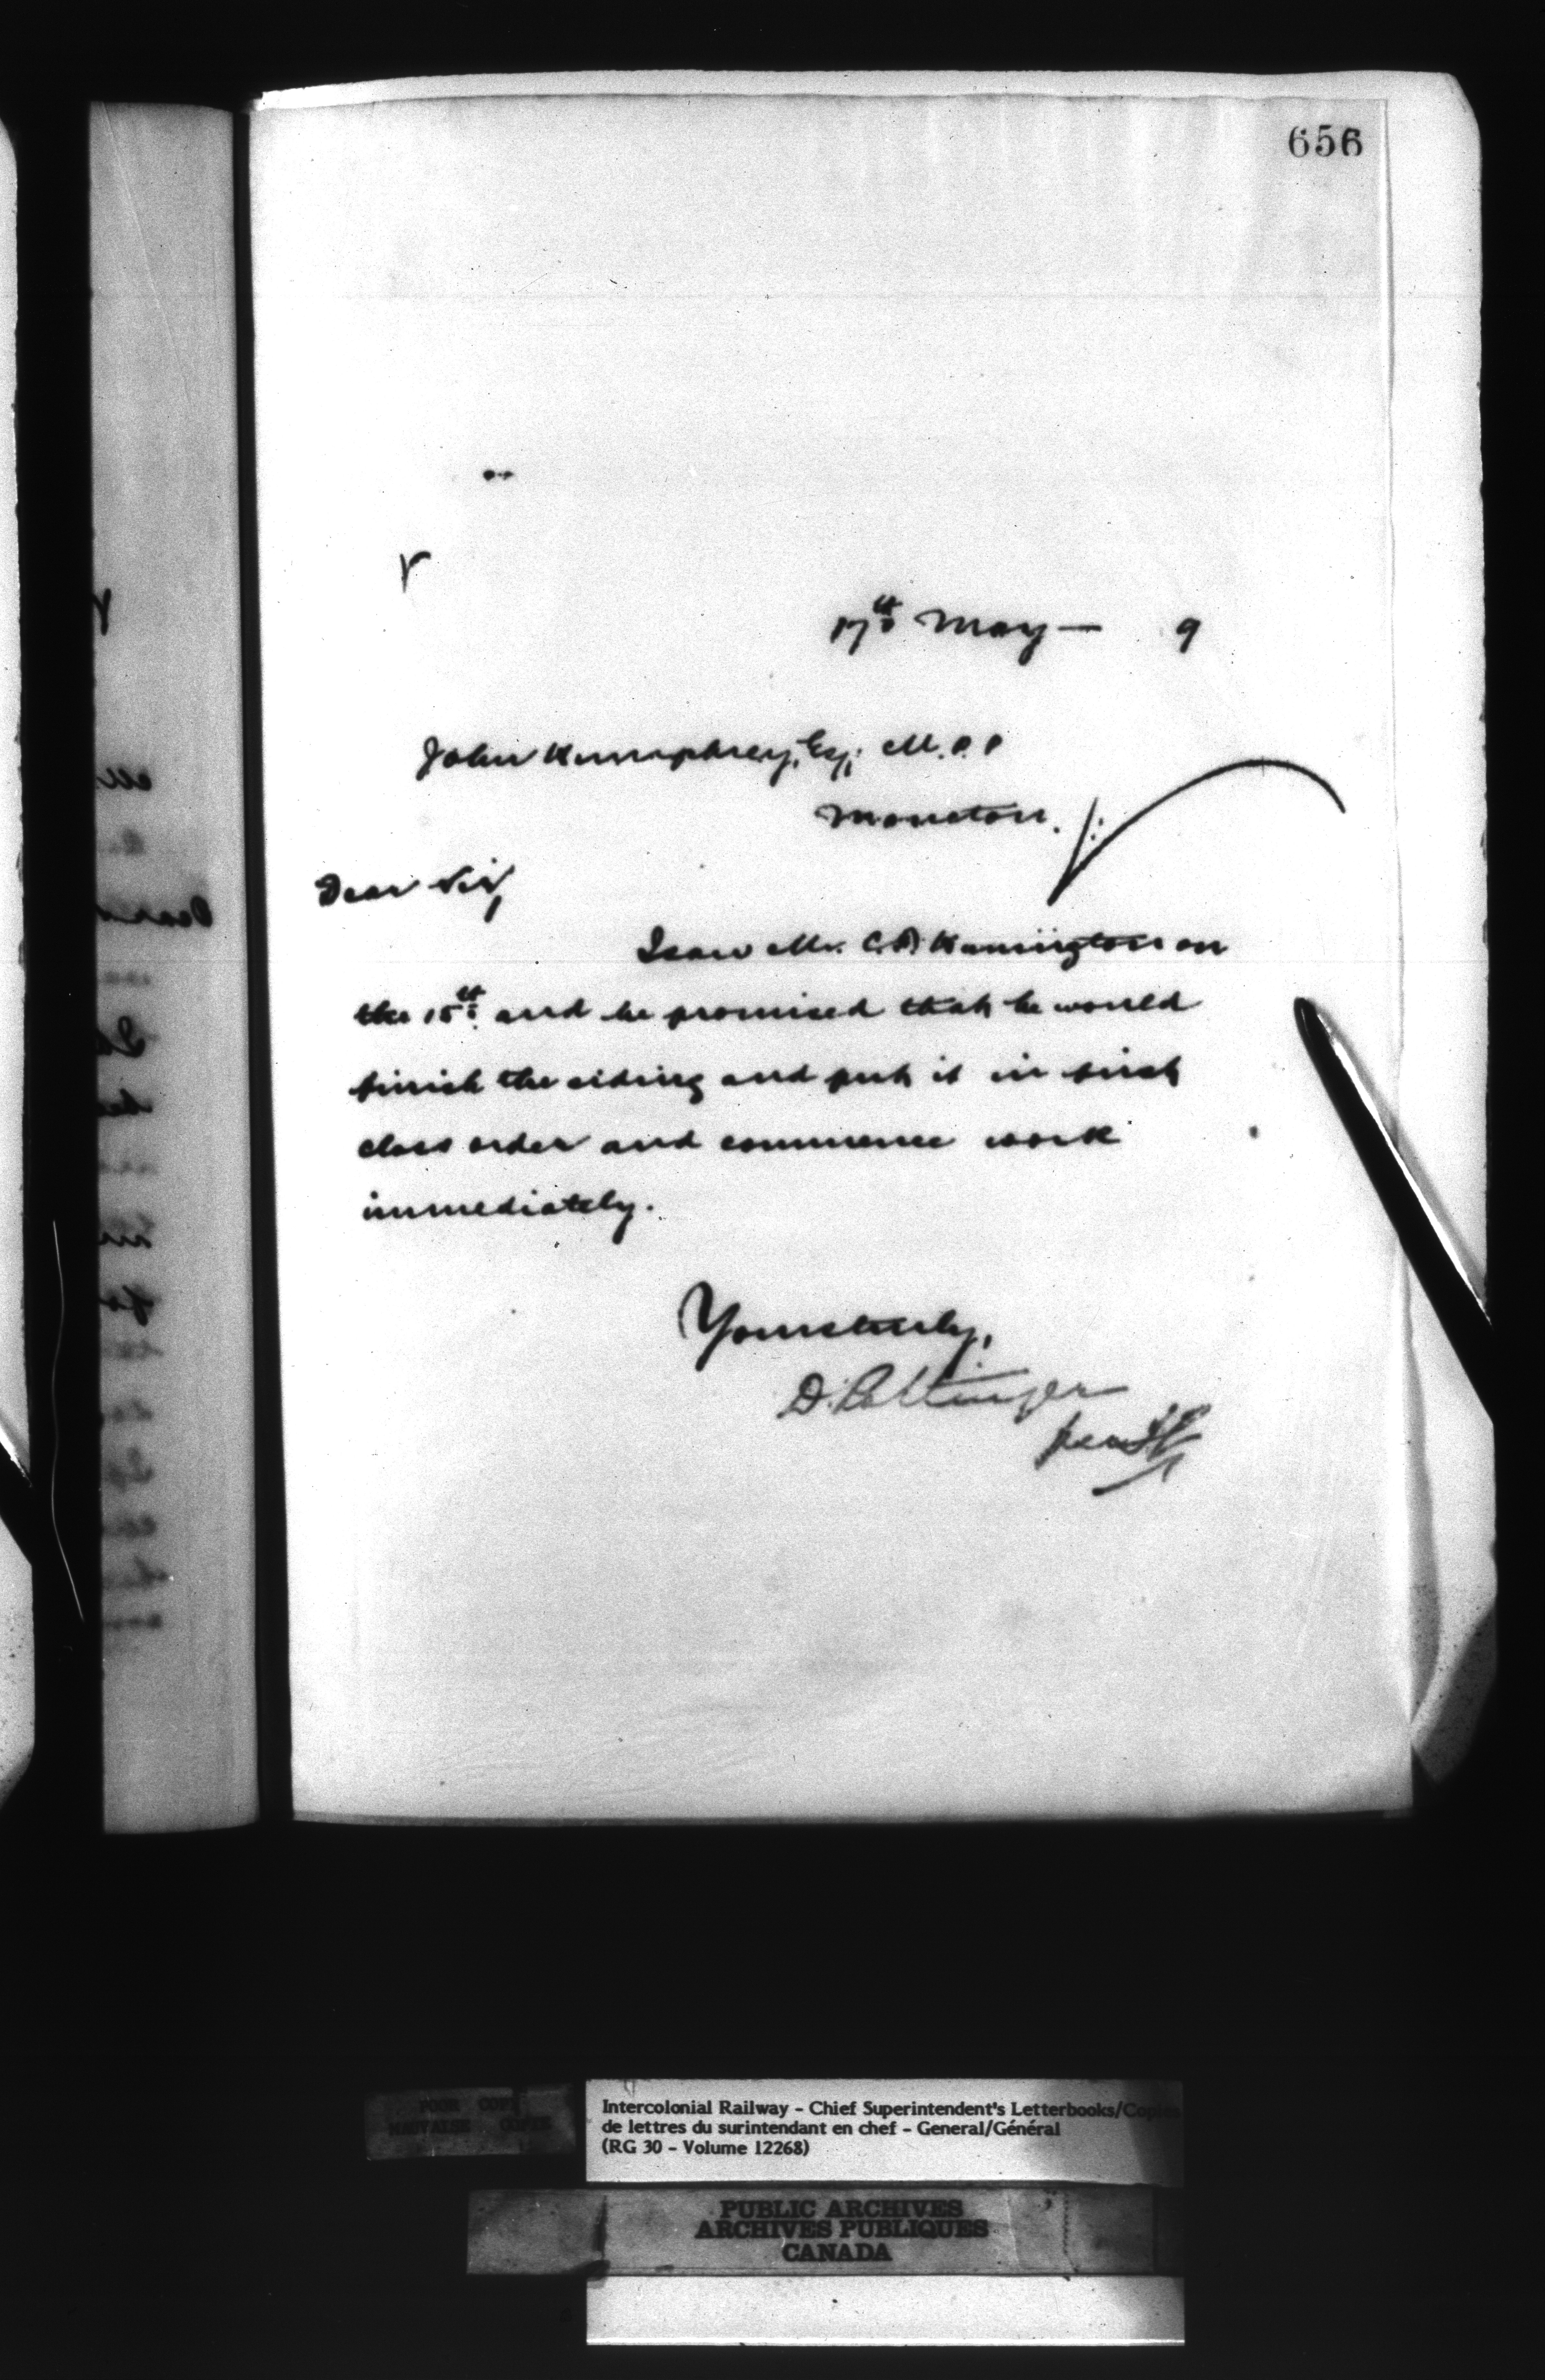 656
17th May — 9
John Humphrey, Esq, M.P.P
Moncton.
Dear Sir,
I saw Mr. C. A. Hannington on
the 15th and he promised that he would
finish the siding and put it in first
class order and commence work
immediately.
Yours truly,
D. Pottinger
per
POOR COPY
MAUVAISE COPIE
Intercolonial Railway - Chief Superintendent's Letterbooks/Copies
de lettres du surintendant en chef - General/Général
(RG 30 - Volume 12268)
PUBLIC ARCHIVES
ARCHIVES PUBLIQUES
CANADA